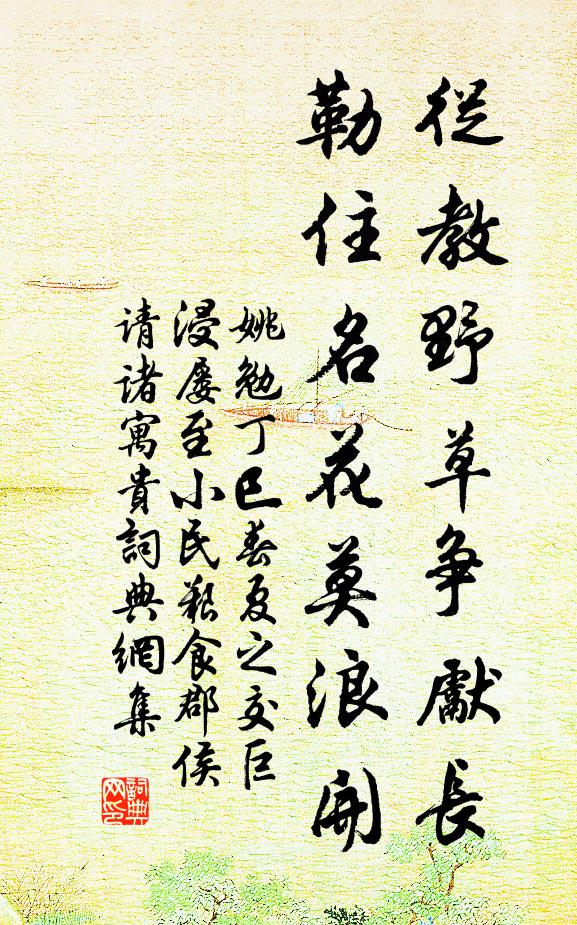 從教野草争獻長
勒住名花莫浪開
姚勉丁巳春夏之交巨
浸屡至小民艱食郡侯
请诸寓貴詞典網集
詞典网印